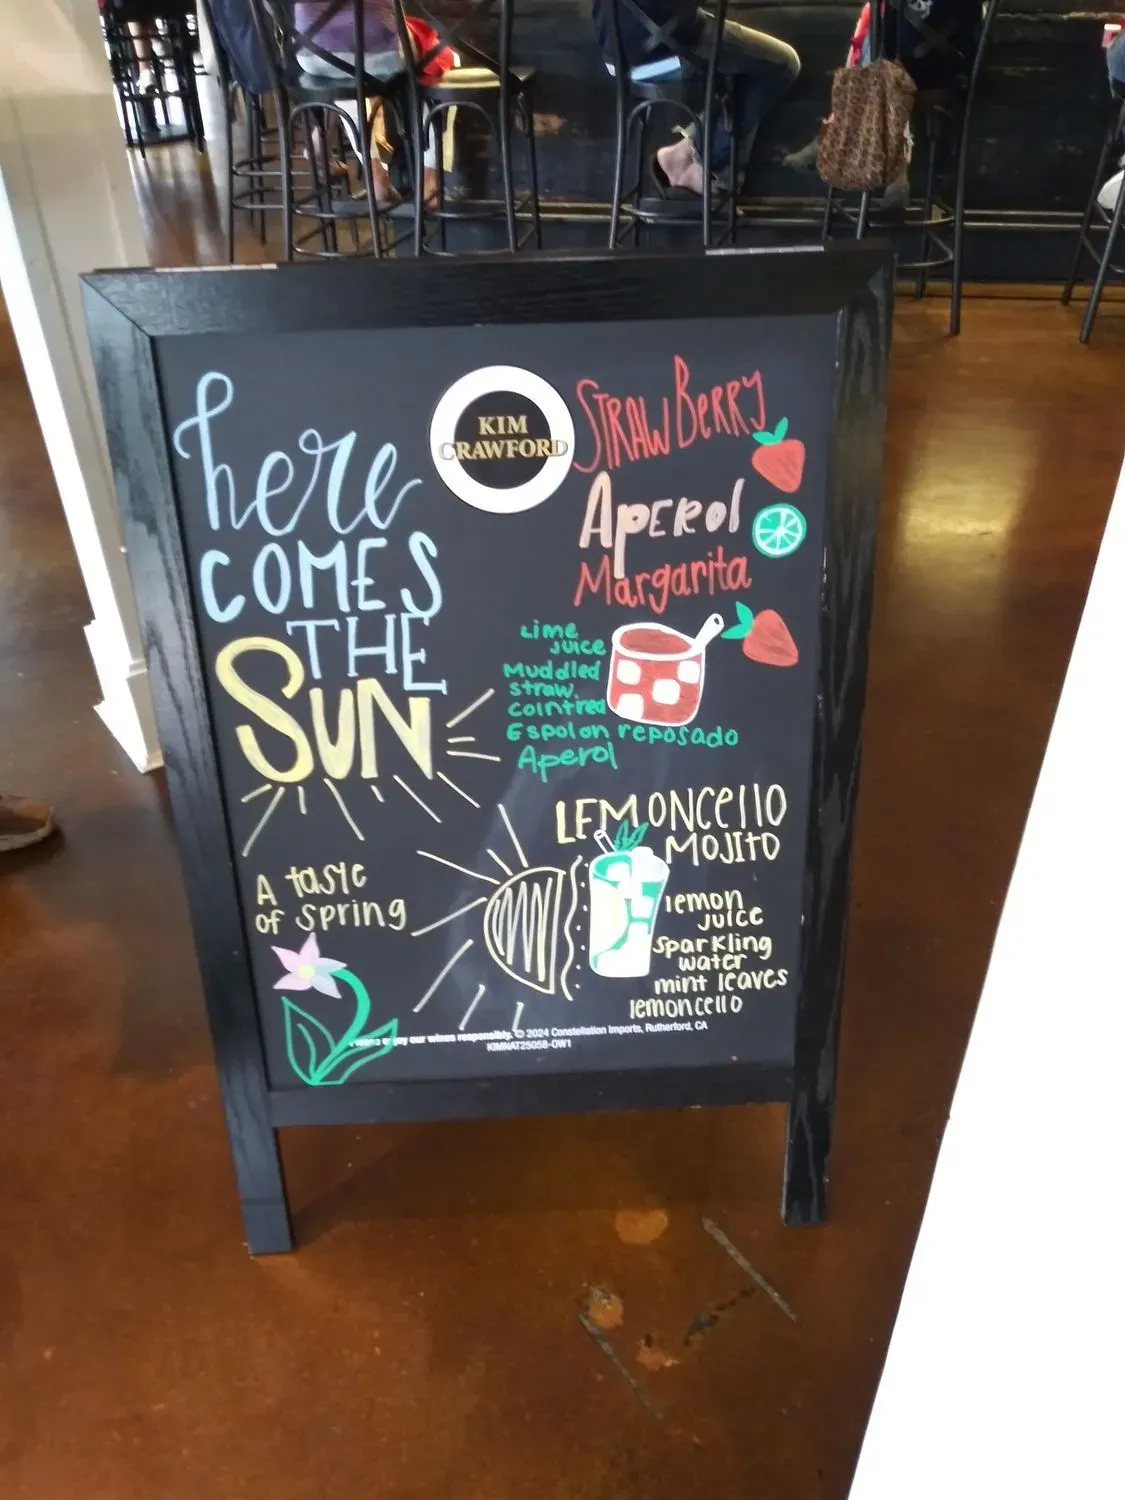 here
COMES
THE
SUN
A taste
of spring
KIM
CRAWFORD
STRAWBERRY
APEROl
Margarita
Lime
Juice
Muddled
straw.
Cointreau
Espolon reposado
Aperol
LEMONCellO
MOJITO
lemon
juice
sparkling
water
mint leaves
lemoncello
enjoy our wines responsibly. © 2024 Constellation Imports, Rutherford, CA
KIMNAT25058-OW1